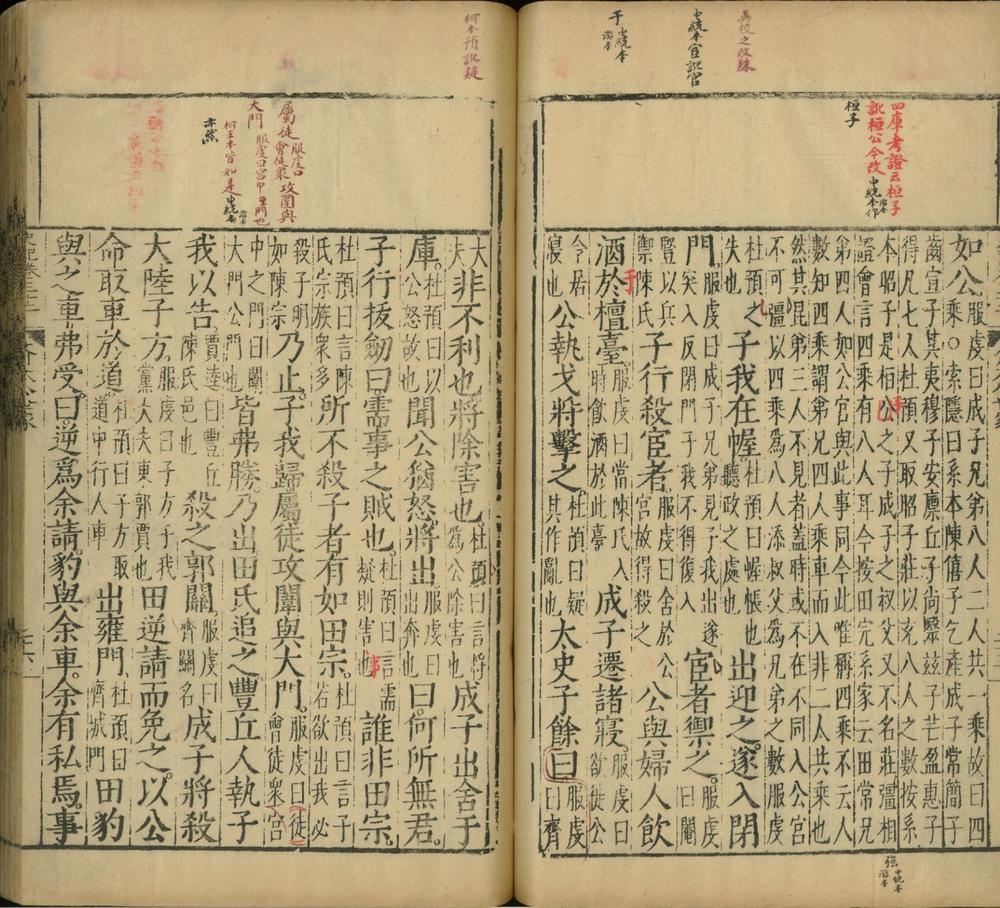 吳校之改殊
中統本宦訛官
于 中統本游本
四庫考證云桓子
訛桓公今改 中統游本作
桓子
如公。服虔曰成子兄弟八人二人共一乘故曰四乘○索隱曰系本陳僖子乞產成子常簡子
齒宣子其夷穆子安廩丘子尚毉兹子芒盈惠子
得凡七人杜預又取昭子莊以充八人之數按系
本昭子是桓公之子成子之叔父又不名莊彊相
證會言四乘有八人耳今按田完系家云田常兄
弟四人如公宮與此事同今此唯稱四乘不云人
數知四乘謂弟兄四人乘車而入非二人共乘也
然其昆弟三人不見者蓋時或不在不同入公宮
不可彊以四乘爲八人添叔父爲兄弟之數服虔
杜預之失也 子我在幄 杜預曰幄帳也聽政之處也 出迎之。遂入閉
門 服虔曰成子兄弟見子我出遂突入反閉門子我不得復入 宦者禦之。服虔曰閹
豎以兵禦陳氏 子行殺宦者。服虔曰舍於公宮故得殺之 公與婦人飲
酒於檀臺 服虔曰當陳氏入時飲酒於此臺 成子遷諸寢。服虔曰欲徙公
令居寢也 公執戈將擊之。杜預曰疑其作亂也 太史子餘曰 服虔曰齊
強 中統本游本
柯本預訛疑
屬徒 服虔曰會徒衆 攻闈與
大門 服虔曰宮中之門也
柯王本皆如是中統游本
亦然
大夫 非不利也將除害也。杜預曰言將爲公除害也 成子出舍于
庫。杜預曰以公怒故也 聞公猶怒將出。服虔曰出奔也 曰何所無君。
子行拔劒曰需事之賊也。杜預曰言需疑則害事也 誰非田宗。
杜預曰言陳氏宗族衆多 所不殺子者有如田宗。杜預曰言子若欲出我必
殺子明如陳宗 乃止子我歸屬徒攻闈與大門。服虔曰徒會徒衆宮
中之門曰闈大門公門也 皆弗勝乃出田氏追之豐丘人執子
我以告。賈逵曰豐丘陳氏邑也 殺之郭關。服虔曰齊關名 成子將殺
大陸子方。服虔曰子方子我黨大夫東郭賈也 田逆請而免之。以公
命取車於道 杜預曰子方取道中行人車 出雍門。杜預曰齊城門 田豹
與之車弗受。曰逆爲余請。豹與余車。余有私焉。事